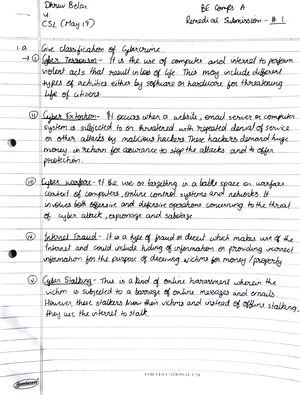 Dhruv Belai
4
CSL (May 19)
BE Comps A
Remedial Submission - #1
1.a Give classification of Cybercrime.
→ (i) Cyber Terrorism - It is the use of computer and internet to perform
violent acts that result in loss of life. This may include different
types of activities either by software or hardware for threatening
life of citizens.
ii) Cyber Extortion - It occurs when a website, email server or computer
system is subjected to or threatened with repeated denial of service
or other attacks by malicious hackers. These hackers demand huge
money in return for assurance to stop the attacks and to offer
protection.
iii) Cyber warfare - It the use or targeting in a battle space or warfare
context of computers, online control systems and networks. It
involves both offensive and defensive operations concerning to the threat
of cyber attack, espionage and sabotage.
iv) Internet Fraud - It is a type of fraud or deceit which makes use of the
Internet and could include hiding of information or providing incorrect
information for the purpose of deceiving victims for money/property
v) Cyber Stalking - This is a kind of online harassment wherein the
victim is subjected to a barrage of online messages and emails.
However these stalkers know their victims and instead of offline stalking,
they use the internet to stalk.
Sundaram
FOR EDUCATIONAL USE